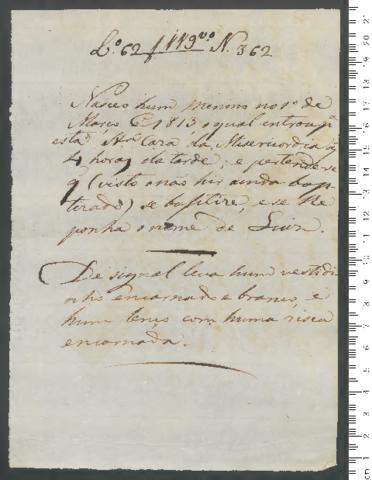 L.º 62 f 119 vº N. 362
Nasceo hum menino no 1º de
Março de 1813 o qual entrou pª
esta Stª Caza da Misericordia ás
4 horas da tarde; e pertende-se
q (visto o não hir ainda bap
tizado) se baptize, e se lhe
ponha o nome de
De signal leva hum vestidi
nho encarnado e branco, e
hum lenço com huma risca
encarnada.